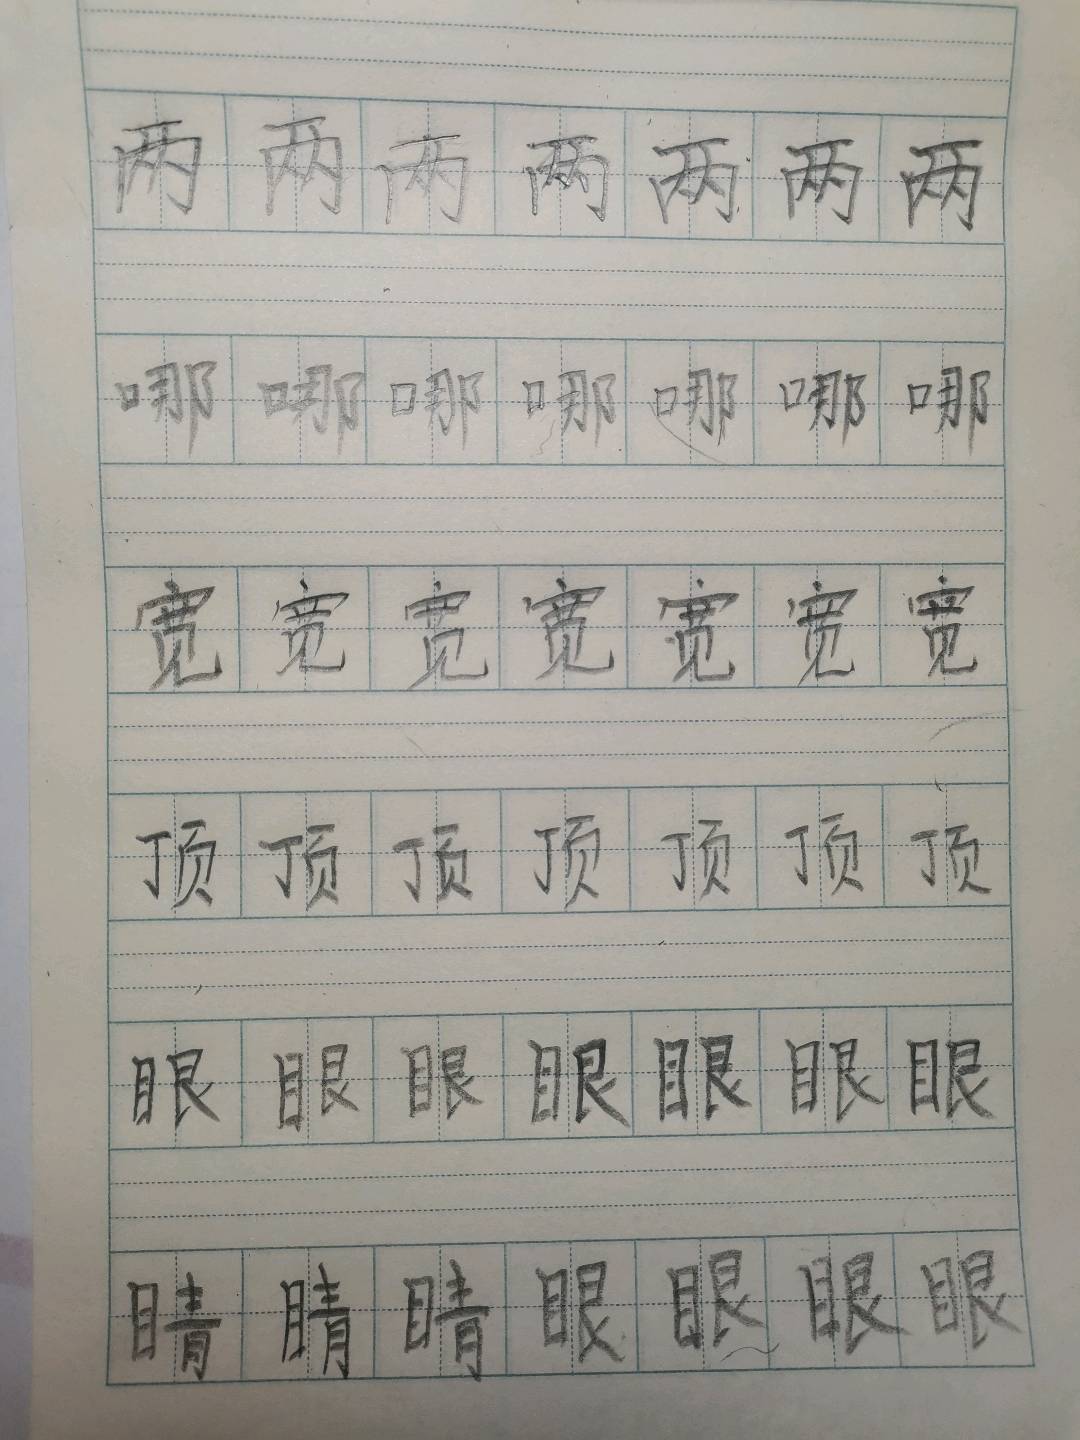 两两两两两两两
哪哪哪哪哪哪哪
宽宽宽宽宽宽宽
顶顶顶顶顶顶顶
眼眼眼眼眼眼眼
睛睛睛眼眼眼眼